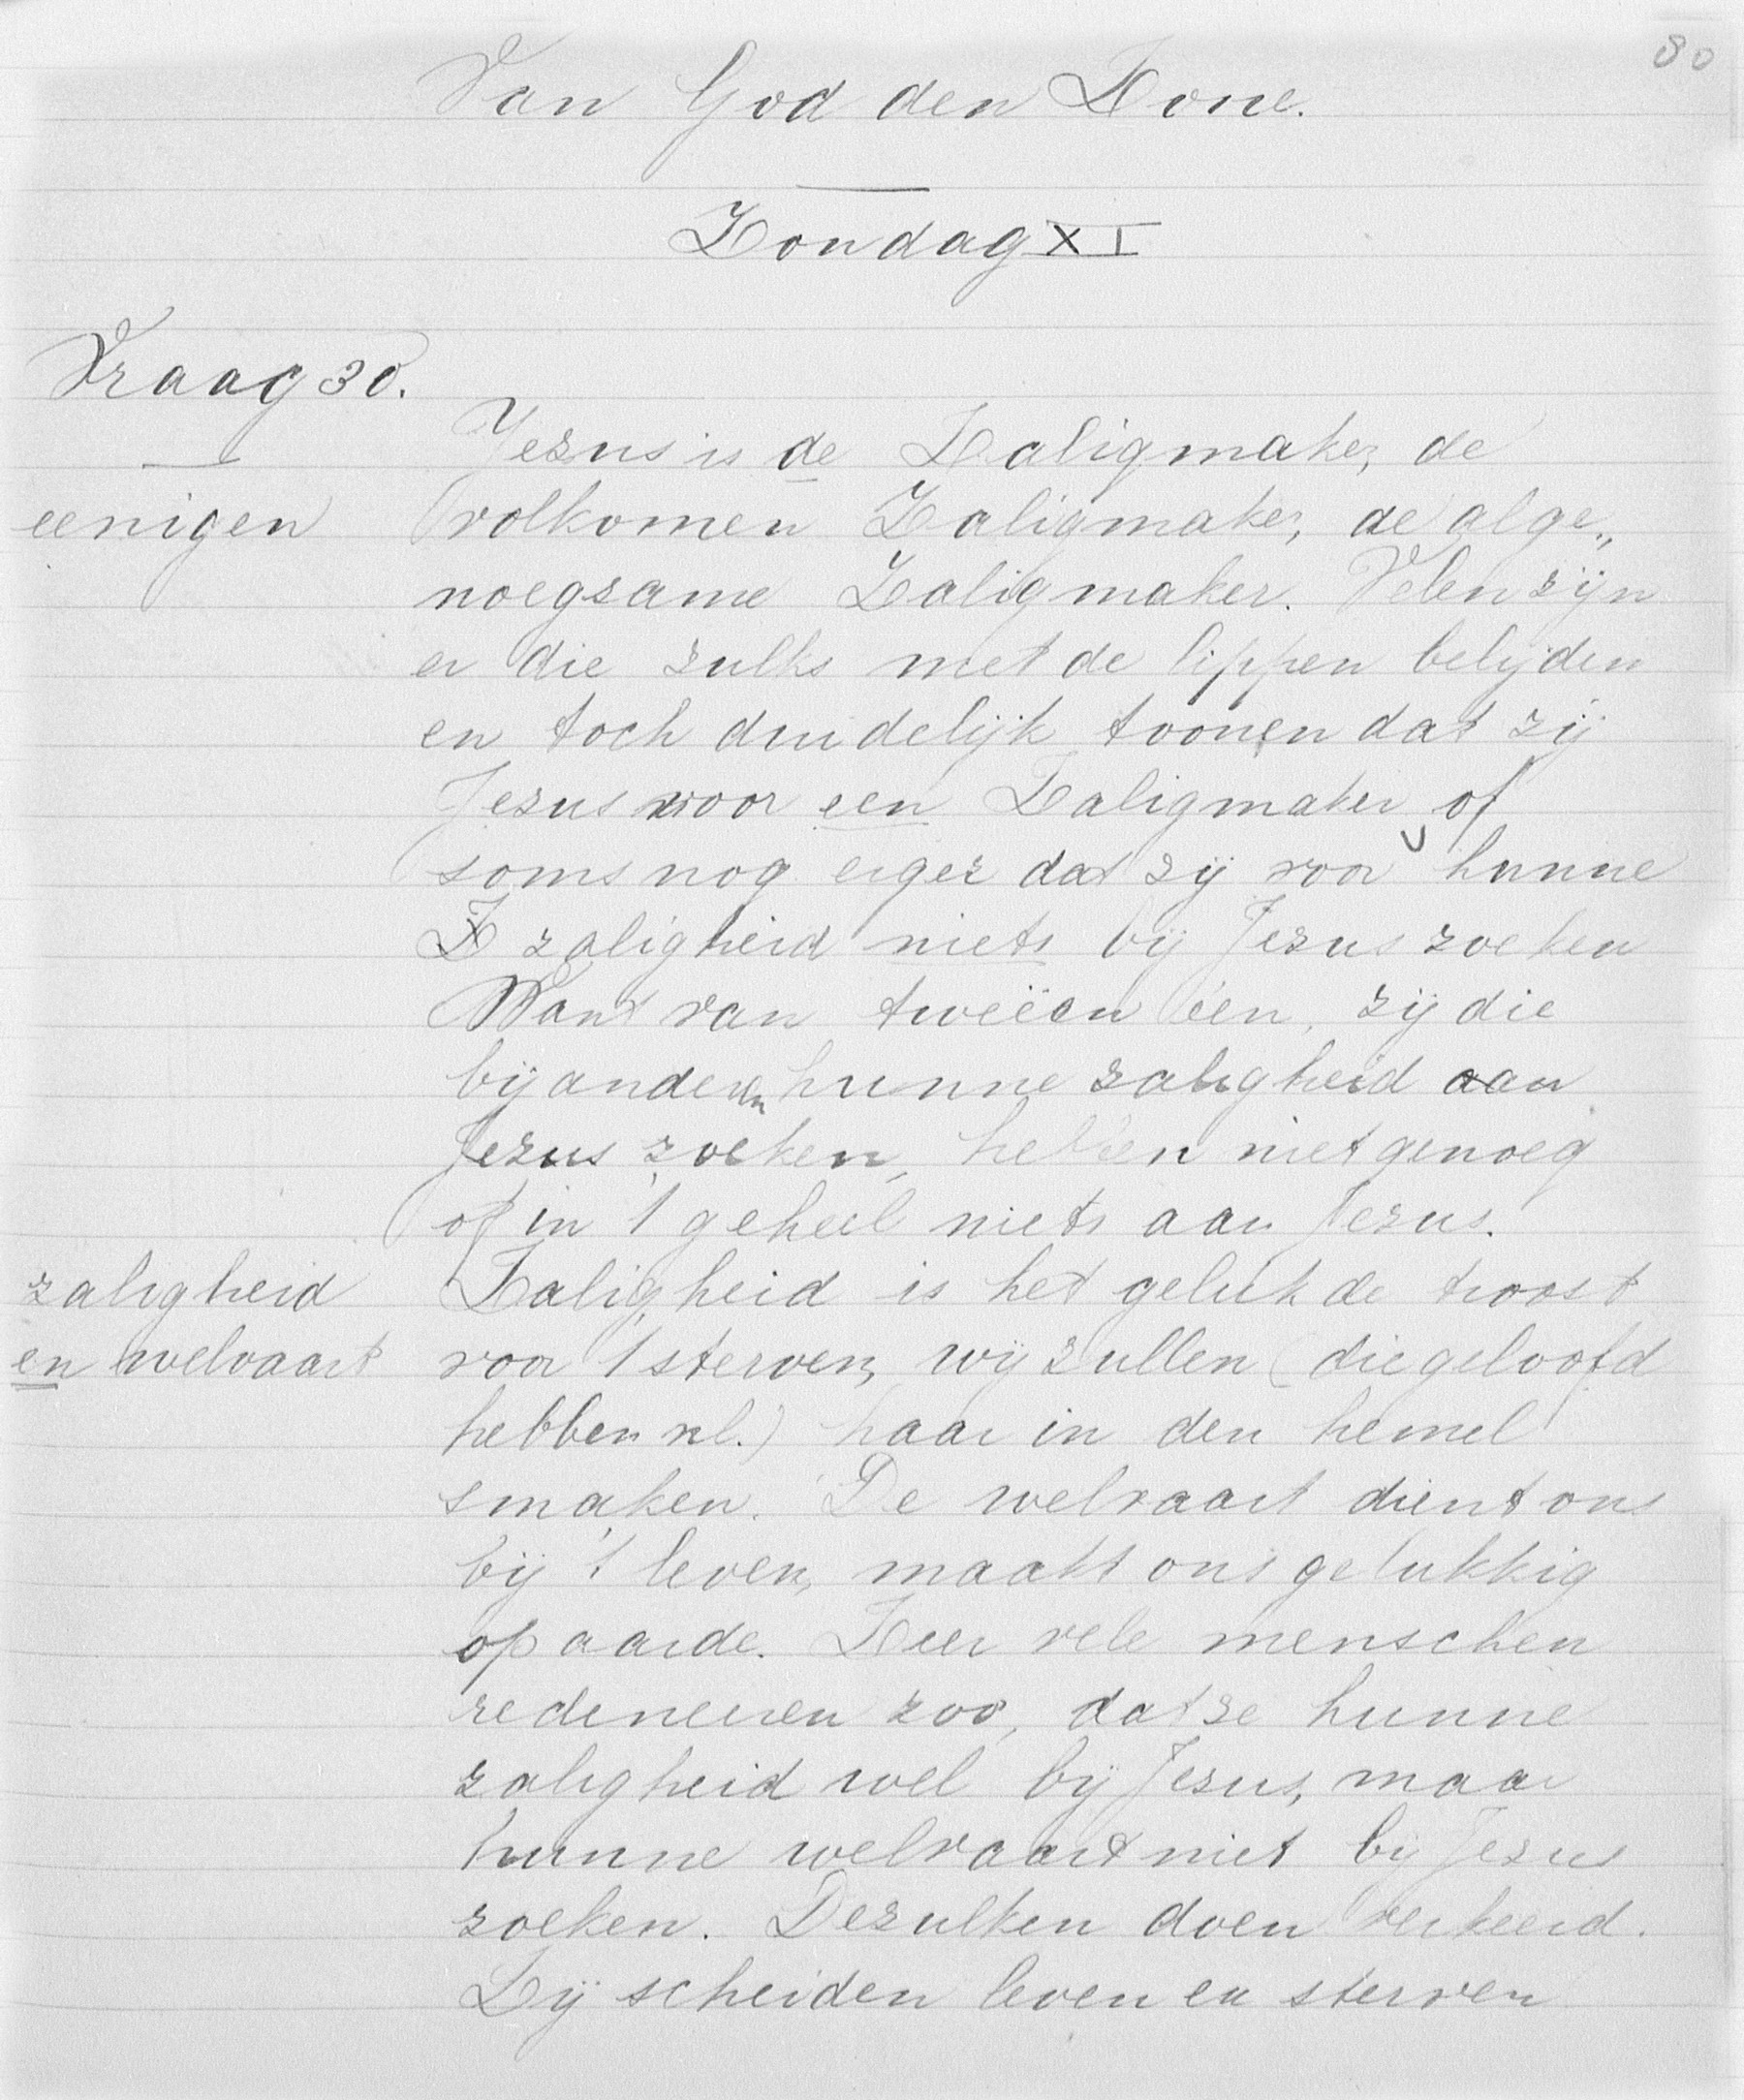 80
Van God den Zone.
Zondag XI
Vraag 30.
Jezus is de Zaligmaker, de
eenigen volkomen Zaligmaker, de alge„
noegzame Zaligmaker. Velen zijn
er die zulks met de lippen belijden
en toch duidelijk toonen dat zij
Jezus voor een Zaligmaker of
soms nog erger dat zij voor hunne
zaligheid niets bij Jezus zoeken
Want van tweeën één, zij die
bij anderen hunne zaligheid aan
Jezus zoeken, hebben niet genoeg
of in 't geheel niets aan Jezus.
zaligheid Zaligheid is het geluk de troost
en welvaart voor 't sterven, wij zullen (die geloofd
hebben nl.) haar in den hemel
smaken. De welvaart dient ons
bij 't leven, maakt ons gelukkig
op aarde. Zeer vele menschen
redeneeren zoo, dat ze hunne
zaligheid wel bij Jezus, maar
hunne welvaart niet bij Jezus
zoeken. Dezulken doen verkeerd.
Zij scheiden leven en sterven